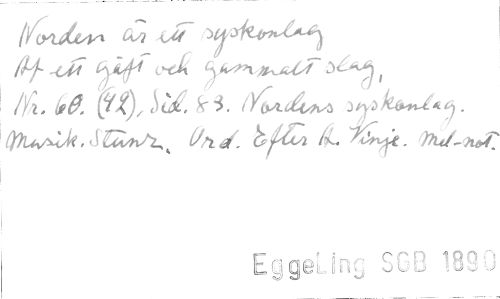 Norden är ett syskonlag
Af ett gäft och gammalt slag,
Nr. 60. (42), Sid. 83. Nordens syskonlag.
Musik. Stunz. Ord. Efter A. Vinje. Mel-not.
EggeLing SGB 1890